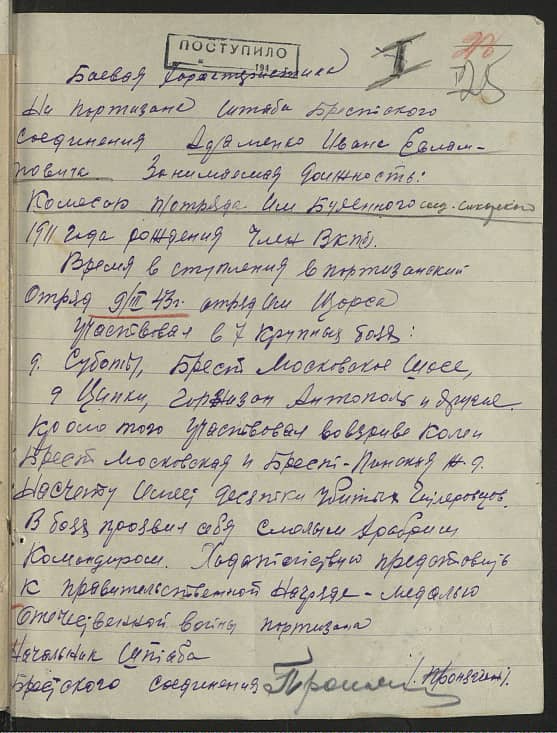 ПОСТУПИЛО
194
I
25
Боевая характеристика
На портизана штаба Брестского
соединения Адаменко Ивана Евлам-
повича Занимаемая должность:
Комесар п/отряда Им Буденного соед.
1911 года рождения член ВКПб.
Время вступления в портизанский
отряд 9/III 43 г. отряд Им Щорса
Участвовал в 7 Крупных боях:
д. Суботы, Брест Московское Шосе,
д Ципки, горнизон Антополь и другие.
Кроме того участвовал во взриве Колеи
Брест Московская и Брест-Пинская ж.д.
Насчету Имеет десятки Убитых Гитлеровцев.
В боях проявил себя смелым храбрым
Командиром. Ходатайствую представить
к правительственной Награде - медалью
Отечественной войны портизана
Начальник Штаба
Брестского соединения